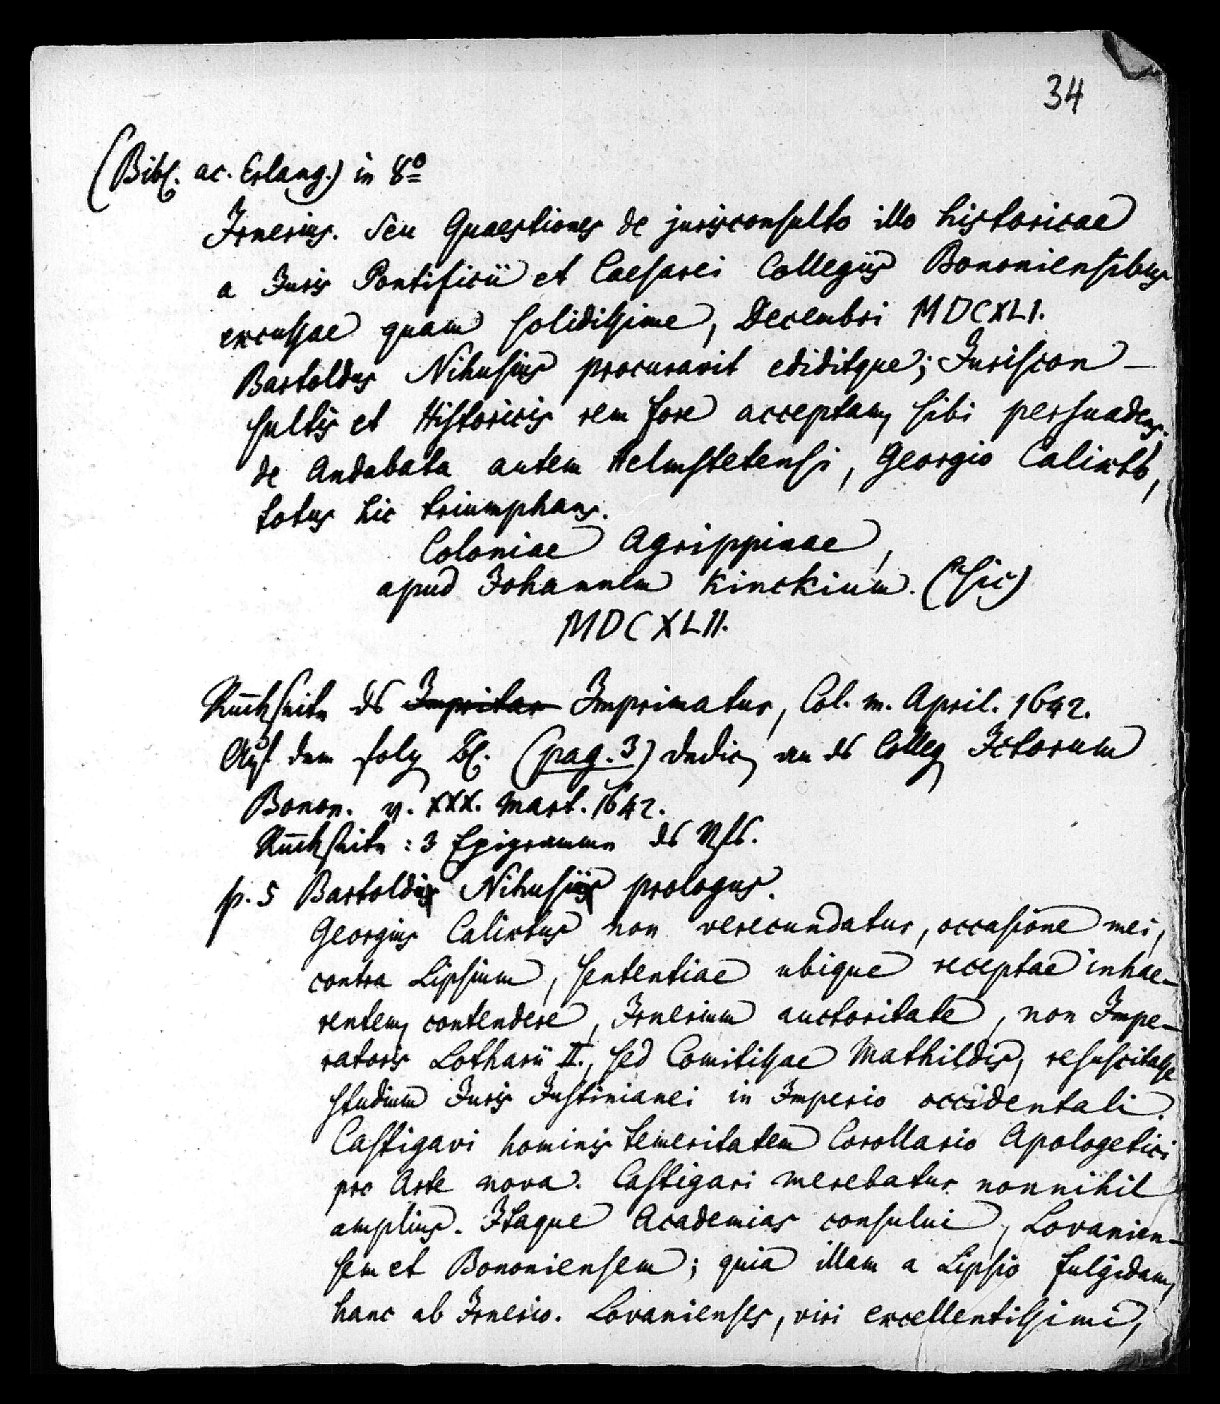 34
(Bibl. ac. Erlang.) in 8º
Irnerius. Seu Quaestiones de jurisconsulto illo historicae
a Juris Pontificii et Caesarei Collegiis Bononiensibus
excussae quam solidissime, Decembri MDCXLI.
Bartoldus Nihusius procuravit ediditque; Juriscon-
sultis et Historicis rem fore acceptam sibi persuadens.
de Andabata autem Helmstetensi, Georgio Calixto,
totus hic triumphans.
Coloniae Agrippinae,
apud Johannem Kinckium. (sic)
MDCXLII.
Rückseite ds Impritar Imprimatur, Col. m. April. 1642.
Auf dem folg Bl. (pag. 3) dedic an ds Colleg Ictorum
Bonon. v. XXX. Mart. 1642.
Rückseite: 3 Epigramme ds Vfs.
p. 5 Bartoldi Nihusii prologus.
Georgius Calixtus non verecundatur, occasione mei,
contra Lipsium, sententiae ubique receptae inhae-
rentem contendere, Irnerium auctoritate, non Impe-
ratoris Lotharii II., sed Comitissae Mathildis, resuscitasse
studium Juris Justinianei in Imperio occidentali.
Castigavi hominis temeritatem Corollario Apologetici
pro Arte nova. Castigari merebatur nonnihil
amplius. Itaque Academias consului, Lovanien-
sem et Bononiensem; quia illam a Lipsio fulgidam,
hanc ab Irnerio. Lovanienses, viri excellentissimi,